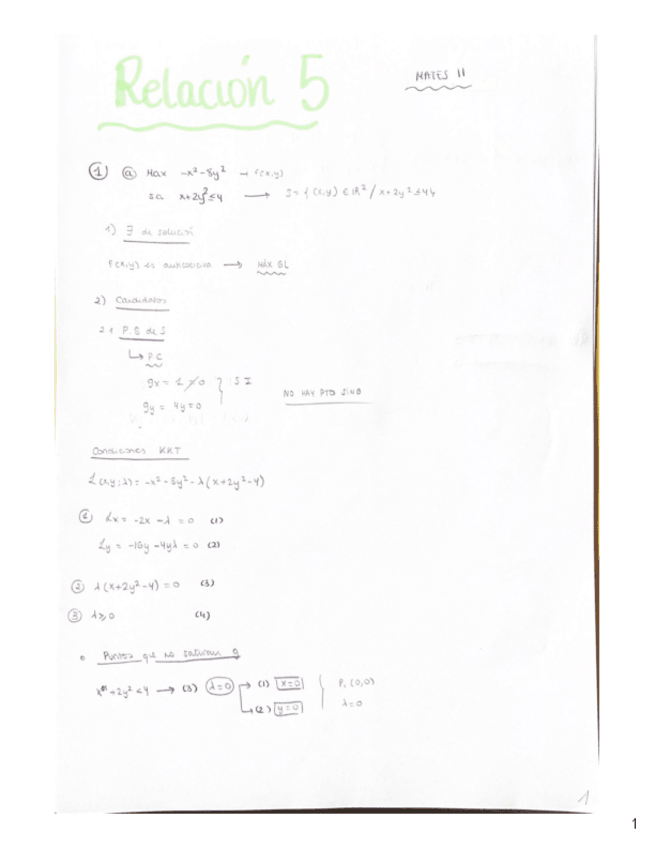 Relación 5
MATES II
① ⓐ Max -x²-8y² → f(x,y)
sa x+2y²≤4 → S={(x,y) ∈ ℝ² / x+2y²≤4}
1) ∃ de solución
F(x,y) es anticoerciva → MÁX GL
2) Candidatos
2.1 P.S de S
↳ P.C
gx = 1 ≠ 0 } S I
gy = 4y = 0
NO HAY PTO SING
Condiciones KKT
L(x,y;λ) = -x²-8y²-λ(x+2y²-4)
① Lx = -2x -λ = 0 (1)
Ly = -16y -4yλ = 0 (2)
② λ(x+2y²-4) = 0 (3)
③ λ≥0 (4)
Puntos que no saturan g
x+2y²<4 → (3) λ=0 → (1) x=0 } P₁(0,0)
↳ (2) y=0 λ=0
1
1